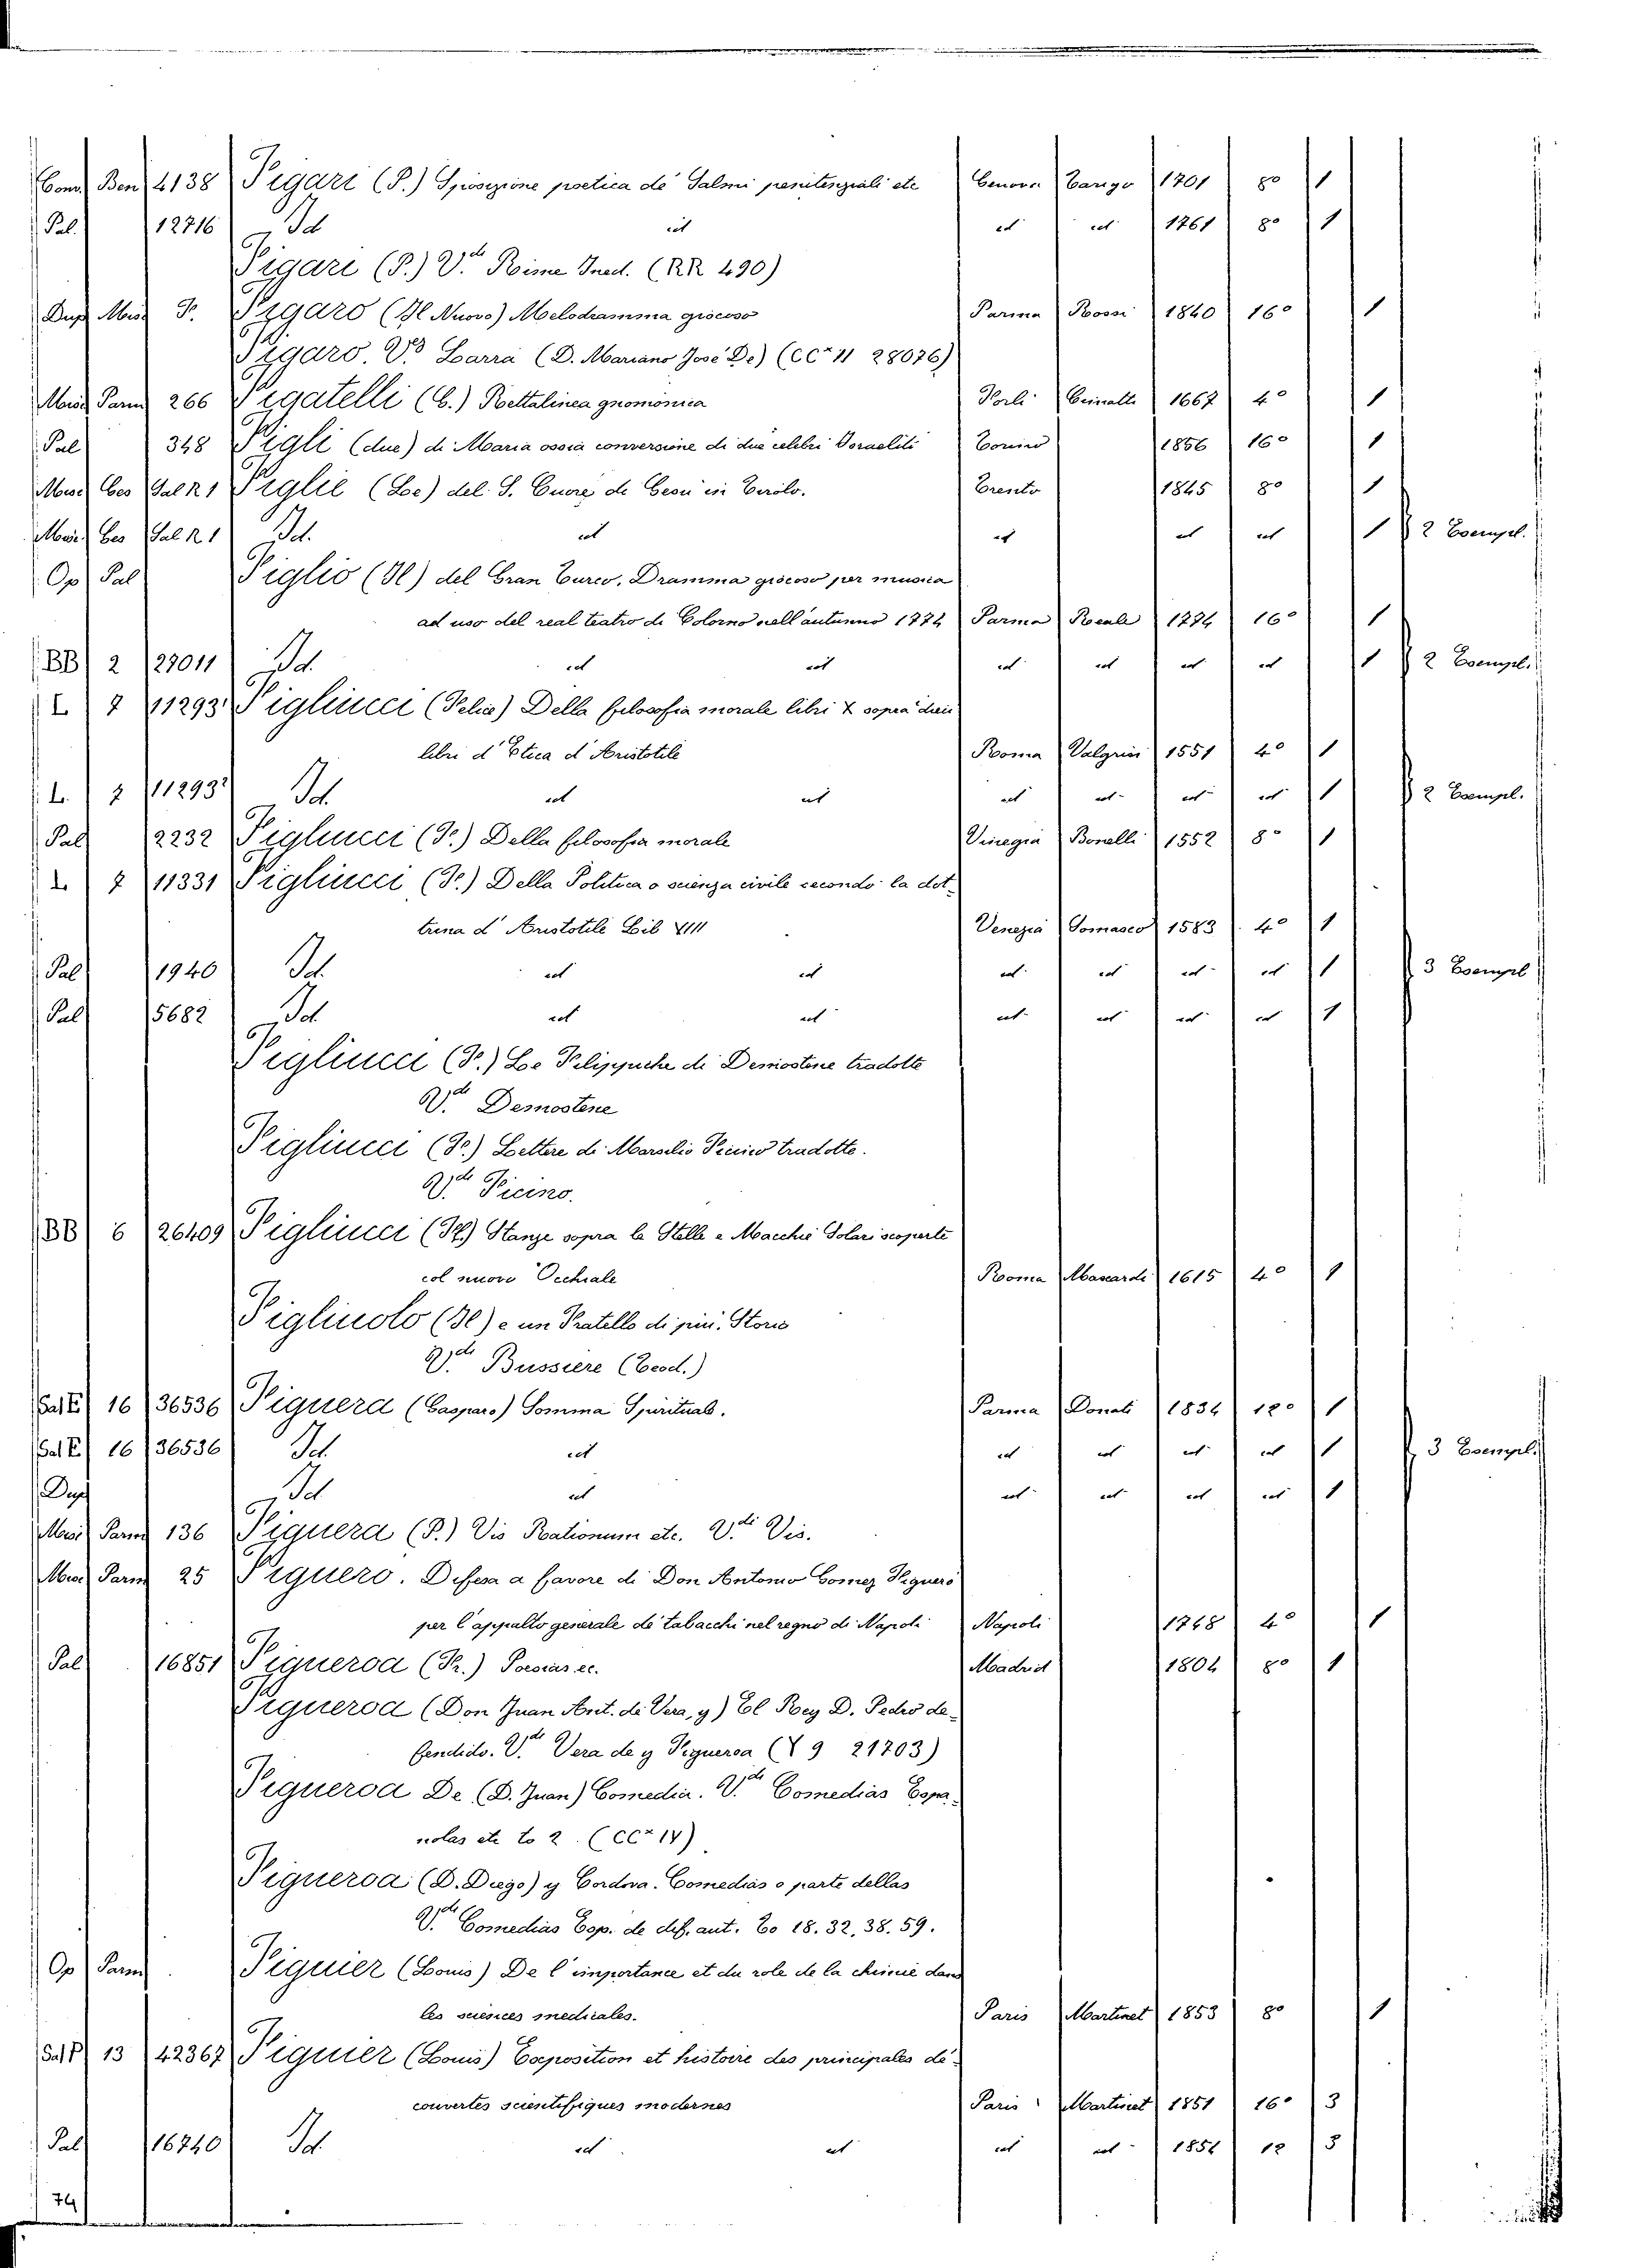 Cons. Ben 4138 Figari (P.) Sposizione poetica de' Salmi penitenziali etc Genova 1701 8º 1
Pal. 12716 Id id id id 1761 8º 1
Figari (P.) V.di Rime Ined. (RR 490)
Dup Mus F. Figaro (Il Nuovo) Melodramma giocoso Parma Rossi 1840 16º 1
Figaro. V.º Larra (D. Mariano José De) (CC* 11 28076)
Parm 266 Figatelli (G.) Rettalinea gnomonica Forli Cimatti 1667 4º 1
Pal 348 Figli (due) di Maria ossia conversione di due celebri Israeliti Torino 1856 16º 1
Ces Sal R 1 Figlie (Le) del S. Cuore di Gesù in Tirolo. Trento 1845 8º 1
Ces Sal R 1 Id. id id id id 1 2 Esempl.
Op Pal Figlio (Il) del Gran Turco. Dramma giocoso per musica
ad uso del real teatro di Colorno nell'autunno 1774 Parma Reale 1774 16º 1
BB 2 27011 Id. id id id id id id 1 2 Esempl.
L 7 11293 Figliucci (Felice) Della filosofia morale libri X sopra i dieci
libri d'Etica d'Aristotile Roma Valgrisi 1551 4º 1
L. 7 11293² Id. id id id id id id 1 2 Esempl.
Pal 2232 Figliucci (F.) Della filosofia morale Vinegia Bonelli 1552 8º 1
L 7 11331 Figliucci (F.) Della Politica o scienza civile secondo la dot-
trina d'Aristotile Lib VIII Venezia Somasco 1583 4º 1
Pal 1940 Id. id id id id id id 1 3 Esempl
Pal 5682 Id. id id id id id id 1
Figliucci (F.) Le Filippiche di Demostene tradotte
V.di Demostene
Figliucci (F.) Lettere di Marsilio Ficino tradotte.
V.di Ficino.
BB 6 26409 Figliucci (Fl) Stanze sopra le Stelle e Macchie Solari scoperte
col nuovo Occhiale Roma Mascardi 1615 4º 1
Figliuolo (Il) e un Fratello di più. Storie
V.di Bussiere (Teod.)
Sal E 16 36536 Figuera (Gasparo) Somma Spirituale. Parma Donati 1834 12º 1
Sal E 16 36536 Id. id id id id id 1 3 Esempl.
Dup Id id id id id id 1
Parm 136 Figuera (P.) Vis Rationum etc. V.di Vis.
Parm 25 Figuero. Difesa a favore di Don Antonio Gomez Figuero
per l'appalto generale de' tabacchi nel regno di Napoli Napoli 1748 4º 1
Pal 16851 Figueroa (Fr.) Poesias ec. Madrid 1804 8º 1
Figueroa (Don Juan Ant. de Vera, y) El Rey D. Pedro de-
fendido. V.di Vera de y Figueroa (Y 9 21703)
Figueroa De (D. Juan) Comedia. V.di Comedias Espa-
nolas etc to 2. (CC* 14)
Figueroa (D. Diego) y Cordova. Comedias o parte dellas
V.di Comedias Esp. de dif. aut. To 18. 32. 38. 59.
Op Parm Figuier (Louis) De l'importance et du role de la chimie dans
les sciences medicales. Paris Martinet 1853 8º 1
Sal P 13 42367 Figuier (Louis) Exposition et histoire des principales de-
couvertes scientifiques modernes Paris Martinet 1851 16º 3
Pal 16740 Id. id id id id 1854 12 3
74